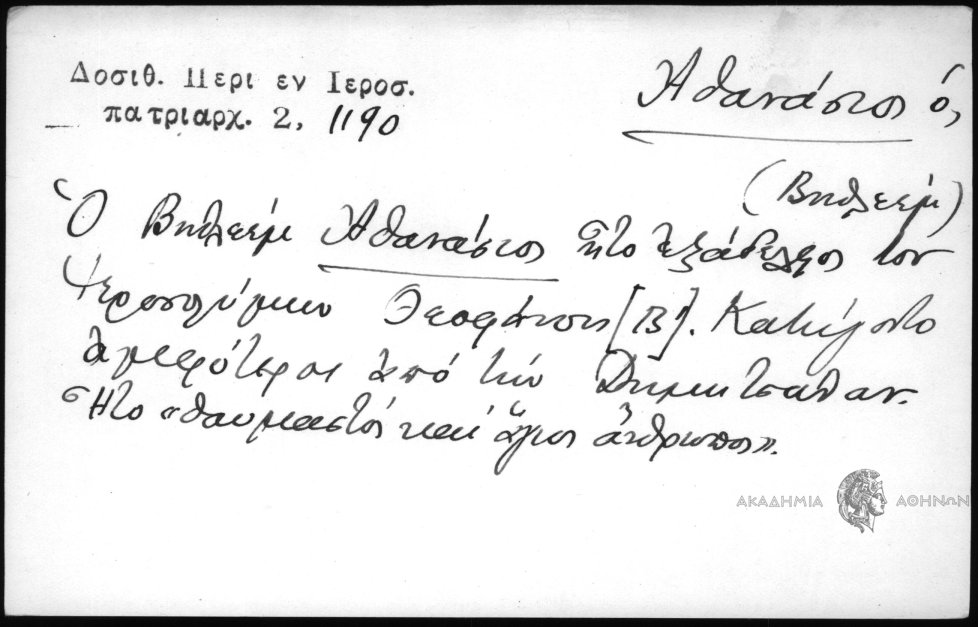 Δοσιθ. Περι εν Ιεροσ.
πατριαρχ. 2, 1190
Ἀθανάσιος ὁ,
(Βηθλεέμ)
Ὁ Βηθλεέμ Ἀθανάσιος ἦτο ἐξάδελφος τοῦ
Ἱεροσολύμων Θεοφάνους [Β']. Κατήγοντο
ἀμφότεροι ἀπό τήν Δημητσάναν.
Ἦτο «θαυμαστός καί ἅγιος ἄνθρωπος».
ΑΚΑΔΗΜΙΑ ΑΘΗΝΩΝ